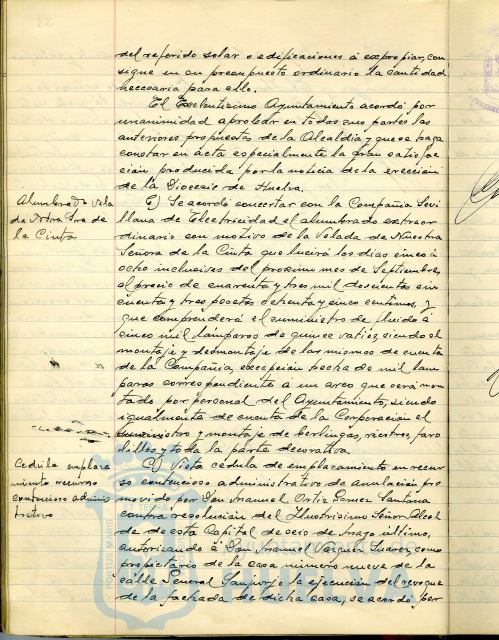 del referido solar o edificaciones á expropiar, con
signe en su presupuesto ordinario la cantidad
necesaria para ello.
El Excelentísimo Ayuntamiento acordó por
unanimidad aprobar en todas sus partes las
anteriores propuestas de la Alcaldía y que se haga
constar en acta especialmente la gran satisfac
ción producida por la noticia de la erección
de la Diocesis de Huelva.
Alumbrado Vela
da Ntra Sra de
la Cinta
Se acordó concertar con la Compañia Sevi
llana de Electricidad el alumbrado extraor
dinario con motivo de la Velada de Nuestra
Señora de la Cinta que lucirá los dias cinco á
ocho inclusives del proximo mes de Septiembre,
al precio de cuarenta y tres mil doscientas cin
cuenta y tres pesetas ochenta y cinco centimos, y
que comprenderá el suministro de fluido á
cinco mil lámparas de quince vatios, siendo el
montaje y desmontaje de las mismas de cuenta
de la Compañia, excepción hecha de mil lam
paras correspondiente a un arco que será mon
tado por personal del Ayuntamiento, siendo
igualmente de cuenta de la Corporación el
suministro y montaje de berlingas, rastros, faro
lillos y toda la parte decorativa.
Cedula emplaza
miento recurso
contencioso adminis
trativo
Vista cédula de emplazamiento en recur
so contencioso administrativo de anulación pro
movido por Don Manuel Ortiz Gomez Santana
contra resolución del Ilustrisimo Señor Alcal
de de esta Capital de seis de Mayo último,
autorizando á Don Manuel Vazquez Suarez, como
propietario de la casa número nueve de la
calle General Sanjurjo la ejecución del revoque
de la fachada de dicha casa, se acordó por